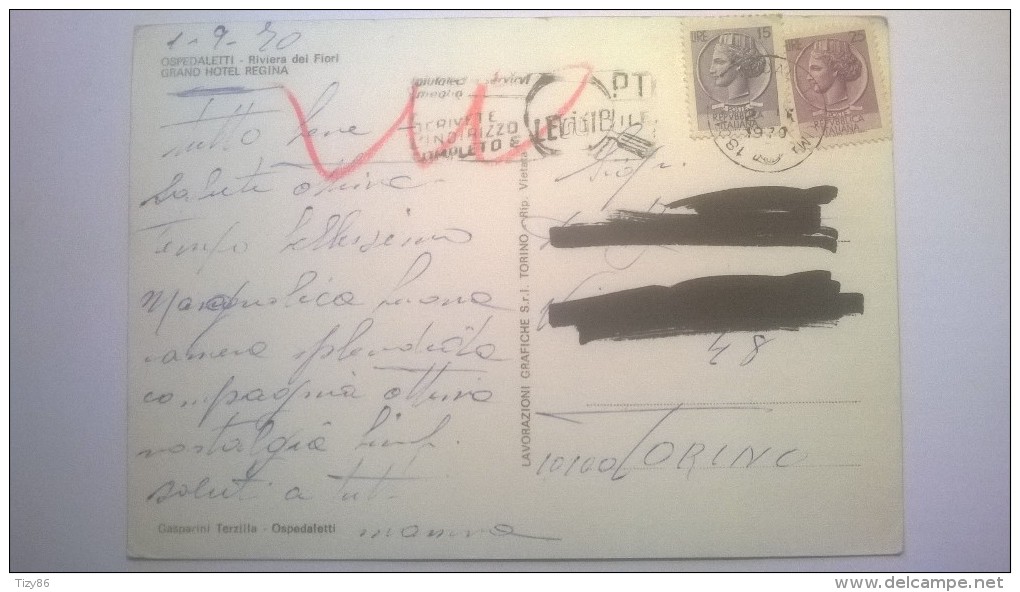 1-9-70
OSPEDALETTI - Riviera dei Fiori
GRAND HOTEL REGINA
Tutto bene -
Salute ottima
Tempo bellissimo
buona
camera splendida
compagnia ottima
nostalgia
saluti a tutti
mamma
Gasparini Terzilla - Ospedaletti
aiutateci a servirvi
meglio
SCRIVETE
INDIRIZZO
COMPLETO E
LEGGIBILE
PT
LIRE 15
POSTE
REPUBBLICA
ITALIANA
LIRE 25
POSTE
REPUBBLICA
ITALIANA
1970
LAVORAZIONI GRAFICHE S.r.l. TORINO - Rip. Vietata
48
10100 TORINO
Tizy86
www.delcampe.net